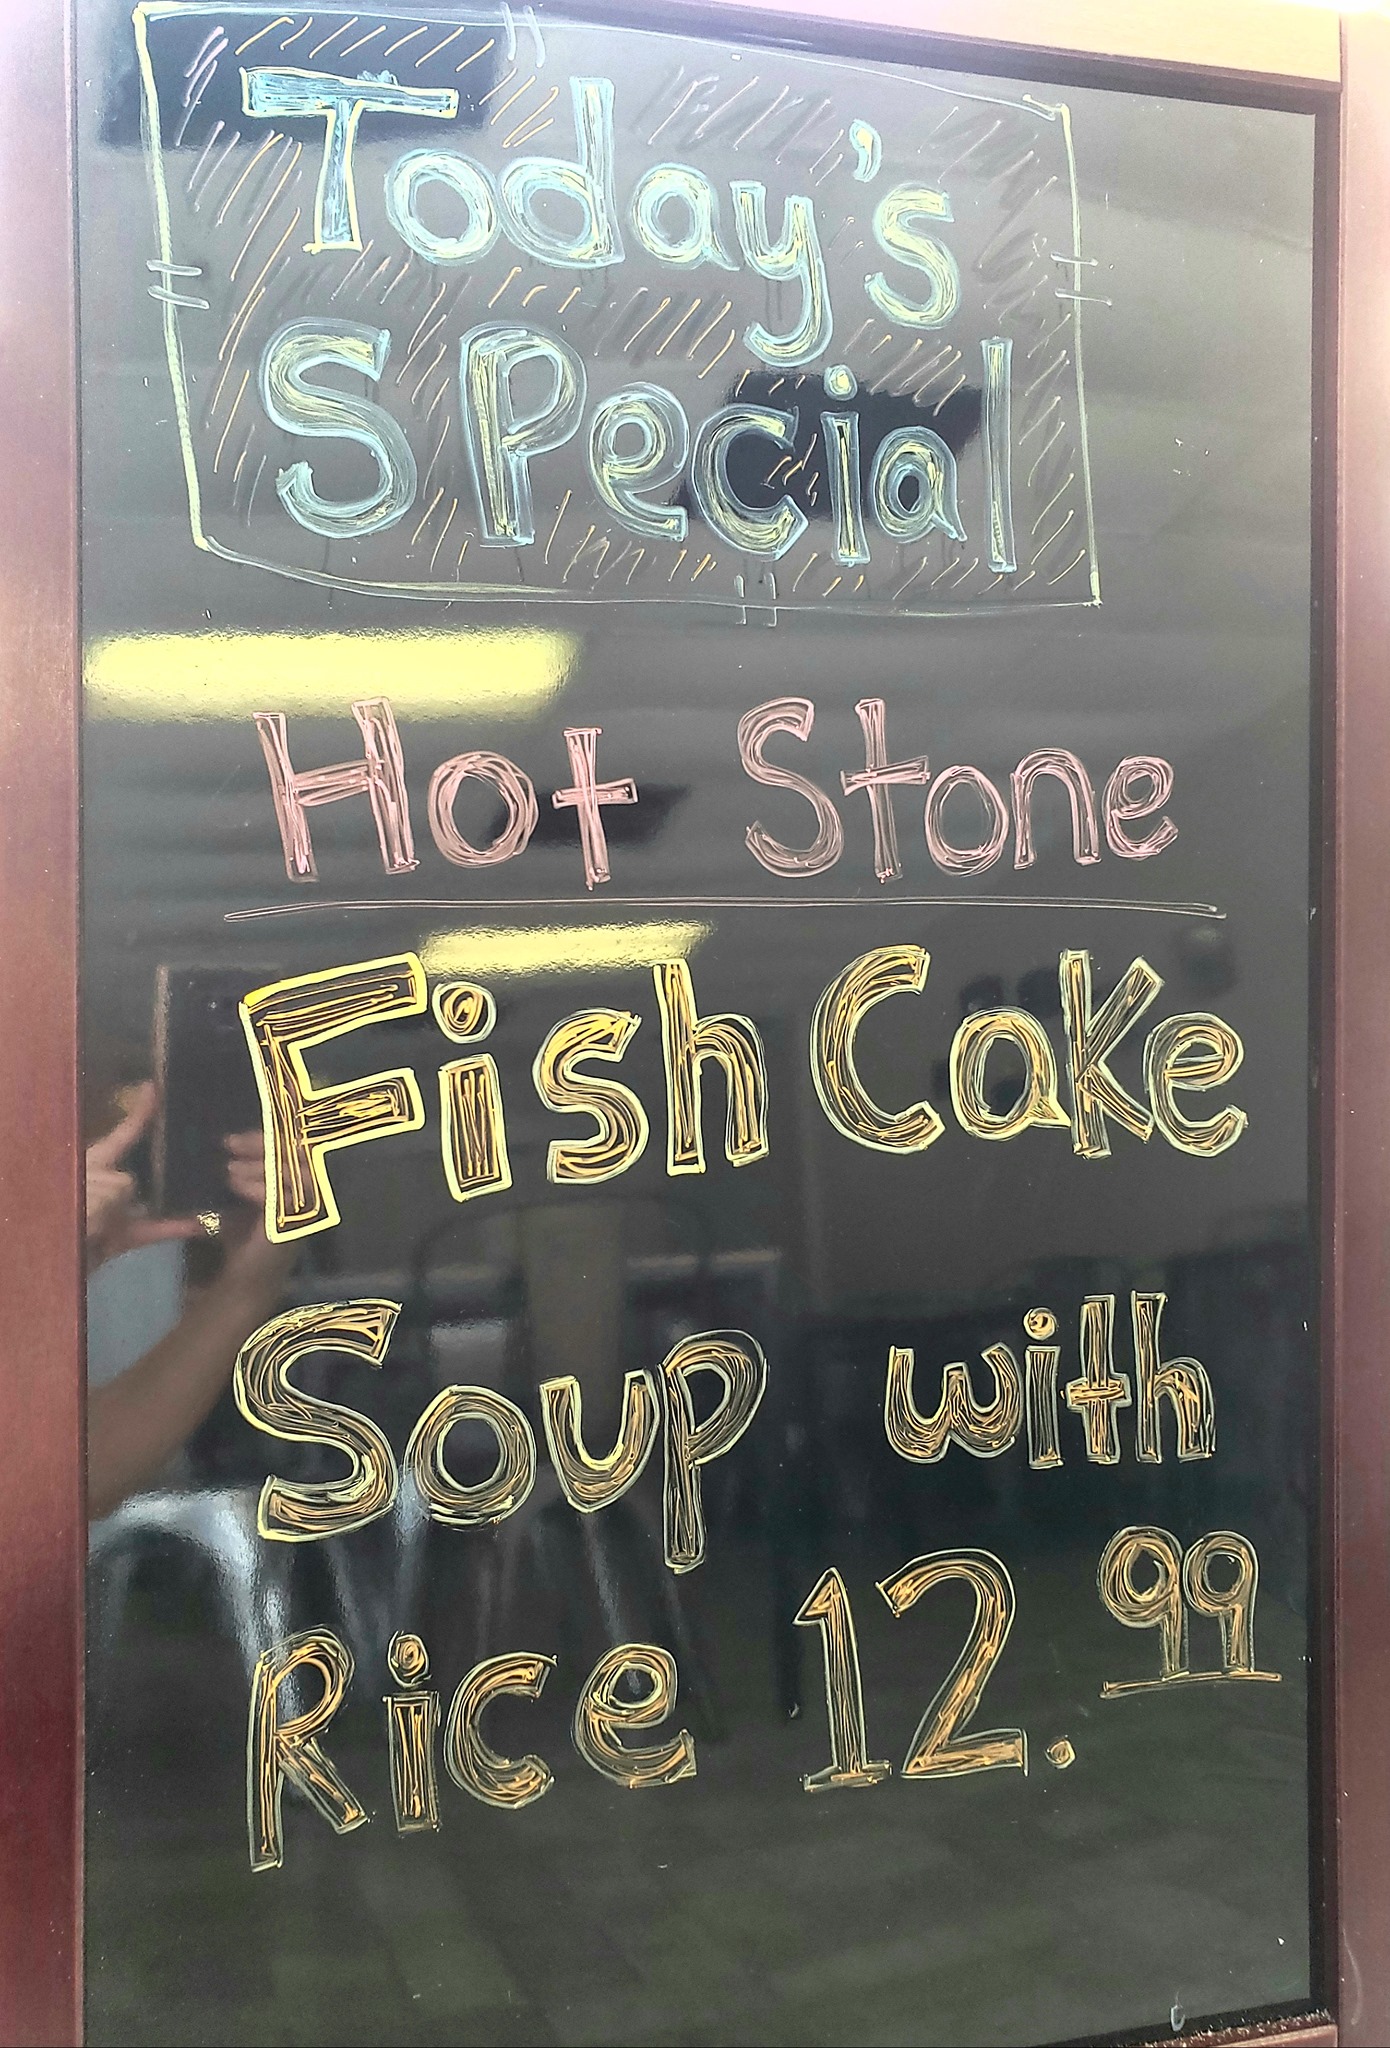 Today's
SPecial
Hot Stone
Fish Cake
Soup with
Rice 12.99